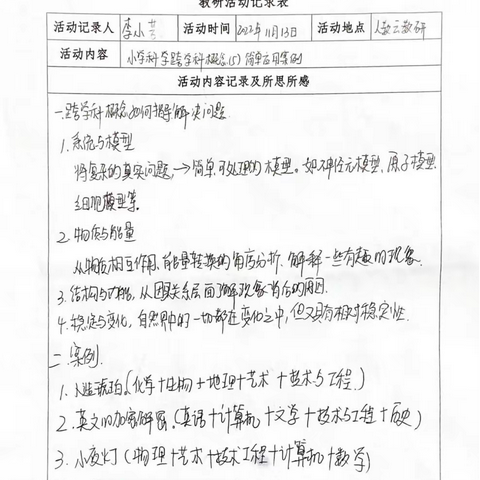 教研活动记录表
活动记录人 李小芸 活动时间 2022年11月13日 活动地点 人教云教研
活动内容 小学科学跨学科概念(5) 简单应用案例
活动内容记录及所思所感
一.跨学科概念如何指导解决问题
1.系统与模型
将复杂的真实问题→简单可处理的模型。如神经元模型,原子模型
细胞模型等。
2.物质与能量
从物质相互作用,能量转换的角度分析.解释一些有趣的现象.
3.结构与功能,从因果关系层面了解现象背后的原因.
4.稳定与变化,自然界中的一切都在变化之中,但又具有相对稳定性.
二.案例.
1.人造琥珀(化学+生物+地理+艺术+技术与工程)
2.英文的加密解密.(英语+计算机+文学+技术与工程+历史)
3.小夜灯(物理+艺术+技术工程+计算机+数学)